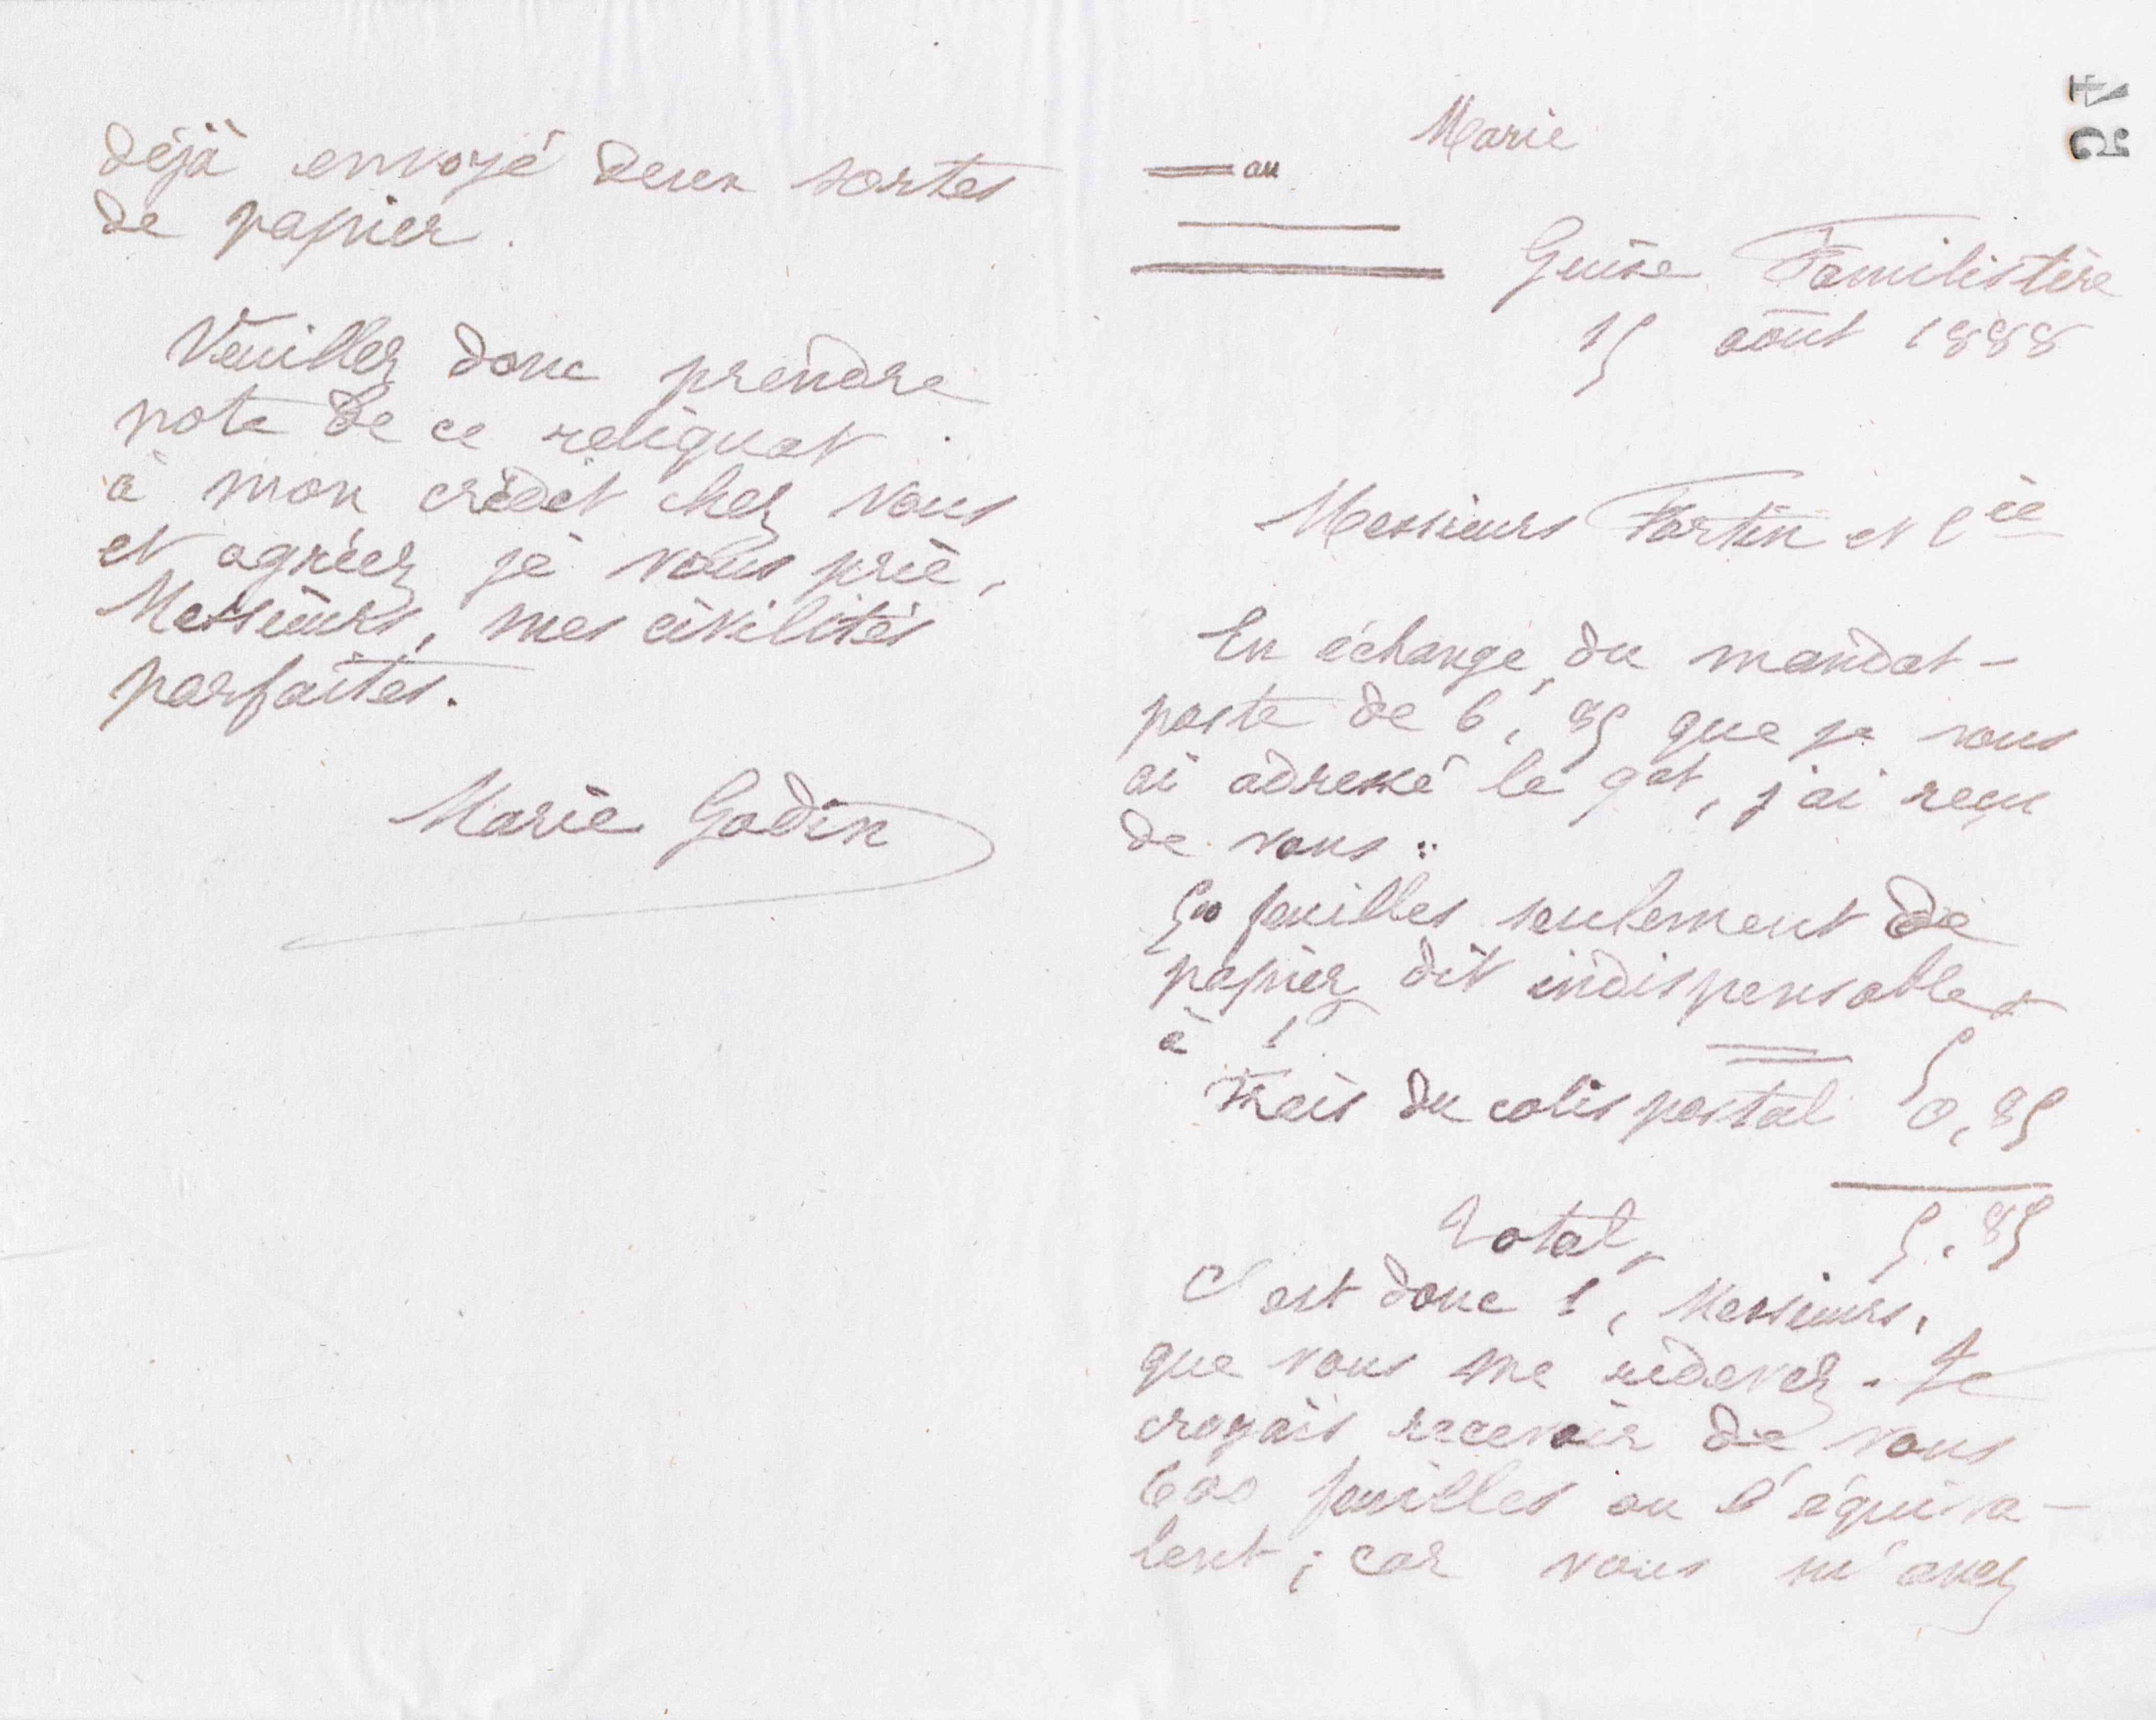 45
Marie
au
Guise Familistère
15 août 1888
Messieurs Fortin et Cie
En échange du mandat-
poste de 6, 85 que je vous
ai adressé le 9 ct, j'ai reçu
de vous :
500 feuilles seulement de
papier dit indispensable
à 1 5
Frais du colis postal 0,85
Total, 5.85
C'est donc 1, Messieurs,
que vous me redevez. Je
croyais recevoir de vous
600 feuilles ou l'équiva-
lent ; car vous m'avez
déjà envoyé deux sortes
de papier.
Veuillez donc prendre
note de ce reliquat
à mon crédit chez vous
et agréez je vous prie,
Messieurs, mes civilités
parfaites.
Marie Godin